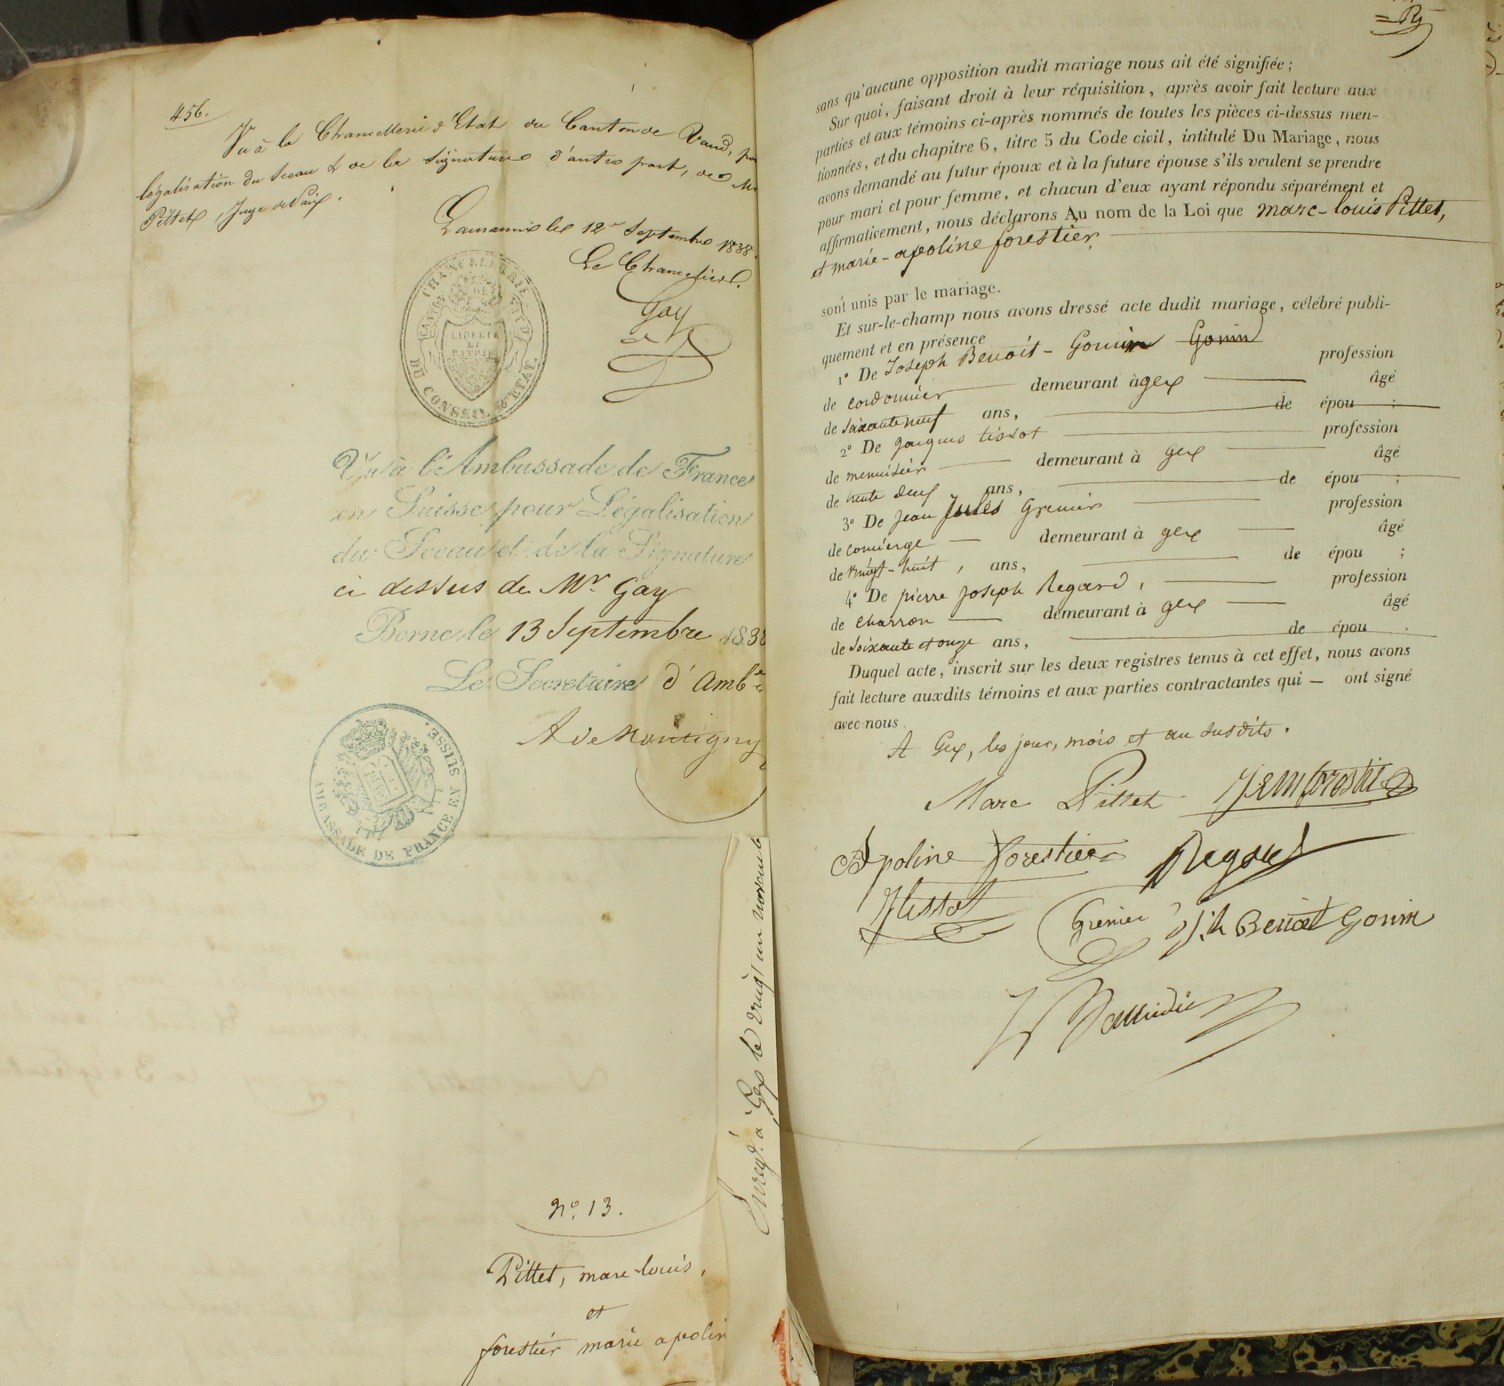 456.
Vu à la Chancellerie d'Etat du Canton de Vaud, po
légalisation du Sceau & de la signature d'autre part, de Mr
Pittet, Juge de Paix.
Lausanne le 12 Septembre 1838.
Le Chancelier.
Gay
CHANCELLERIE
DU CONSEIL D'ETAT.
CANTON DE VAUD
LIBERTÉ
ET
PATRIE
Vu à l'Ambassade de France
en Suisse pour Légalisation
du Sceau et de la Signature
ci dessus de Mr Gay
Berne le 13 Septembre 1838
Le Secrétaire d'Amb
A de Montigny
AMBASSADE DE FRANCE EN SUISSE.
Enregt. à Gex le vingt un novemb
No. 13.
Pittet, marc-louis,
et
forestier marie apolin
sans qu'aucune opposition audit mariage nous ait été signifiée ;
Sur quoi, faisant droit à leur réquisition, après avoir fait lecture aux
parties et aux témoins ci-après nommés de toutes les pièces ci-dessus men-
tionnées, et du chapitre 6, titre 5 du Code civil, intitulé Du Mariage, nous
avons demandé au futur époux et à la future épouse s'ils veulent se prendre
pour mari et pour femme, et chacun d'eux ayant répondu séparément et
affirmativement, nous déclarons Au nom de la Loi que marc-louis Pittet,
et marie-apoline forestier.
sont unis par le mariage.
Et sur-le-champ nous avons dressé acte dudit mariage, célébré publi-
quement et en présence
1° De Joseph Benoit-Gonin Gonin profession
de cordonnier demeurant à gex âgé
de soixante neuf ans, de épou ;
2° De jacques tissot profession
de menuisier demeurant à gex âgé
de trente deux ans, de épou ;
3° De jean Jules Grenier profession
de concierge demeurant à gex âgé
de vingt-huit, ans, de épou ;
4° De pierre joseph Regard, profession
de charron demeurant à gex âgé
de soixante et onze ans, de épou .
Duquel acte, inscrit sur les deux registres tenus à cet effet, nous avons
fait lecture auxdits témoins et aux parties contractantes qui — ont signé
avec nous
A Gex, les jour, mois et an susdits.
Marc Pittet forestier
Apoline forestier Regard
Jtissot
Grenier Jh Benoit Gonin